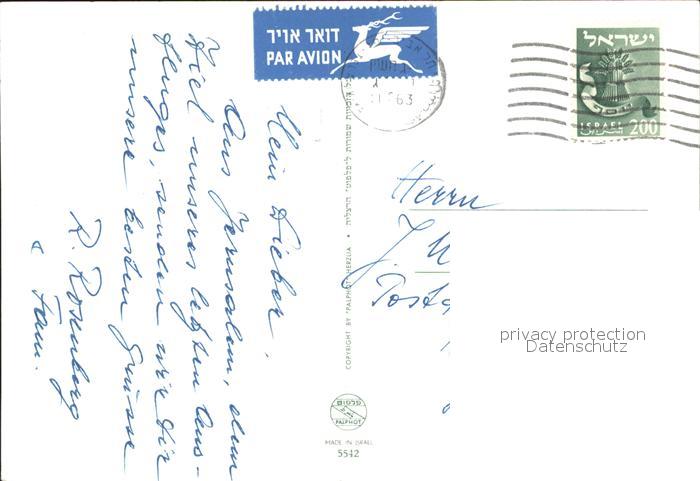 דואר אויר
PAR AVION
ישראל
ISRAEL 200
Mein Lieber,
Aus Jerusalem, dem
Ziel unseres letzten Aus-
fluges, senden wir Dir
unsere besten Grüsse
R. Rosenberg
& Fam.
COPYRIGHT BY "PALPHOT" HERZLIA
כל הזכויות שמורות ל"פלפוט" הרצליה
Herrn
J.
privacy protection
Datenschutz
פלפוט
PALPHOT
MADE IN ISRAEL
5542